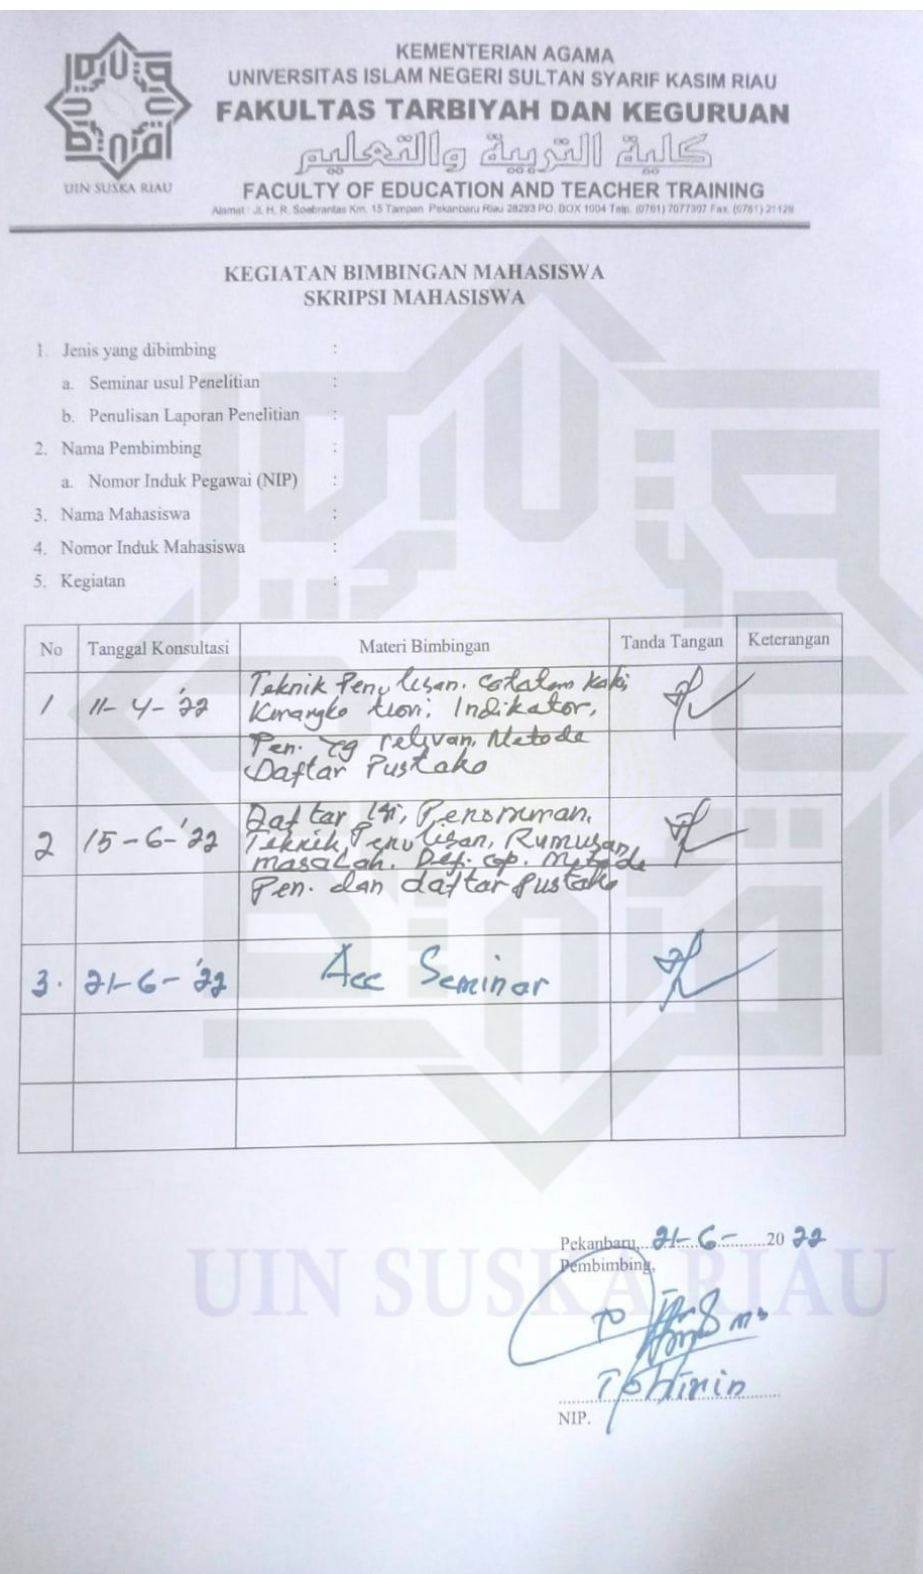 KEMENTERIAN AGAMA
UNIVERSITAS ISLAM NEGERI SULTAN SYARIF KASIM RIAU
FAKULTAS TARBIYAH DAN KEGURUAN
كلية التربية والتعليم
UIN SUSKA RIAU
FACULTY OF EDUCATION AND TEACHER TRAINING
Alamat : Jl. H. R. Soebrantas Km. 15 Tampan Pekanbaru Riau 28293 PO. BOX 1004 Telp. (0761) 7077307 Fax. (0761) 21129
KEGIATAN BIMBINGAN MAHASISWA
SKRIPSI MAHASISWA
1. Jenis yang dibimbing :
a. Seminar usul Penelitian :
b. Penulisan Laporan Penelitian :
2. Nama Pembimbing :
a. Nomor Induk Pegawai (NIP) :
3. Nama Mahasiswa :
4. Nomor Induk Mahasiswa :
5. Kegiatan :
No Tanggal Konsultasi Materi Bimbingan Tanda Tangan Keterangan
1 11-4-'22 Teknik Penulisan. Catatan kaki,
Kerangka teori, Indikator,
Pen. yg relevan, Metode
Daftar Pustaka
2 15-6-'22 Daftar Isi, Penomoran,
Teknik Penulisan, Rumusan
masalah. Def. op. Metode
Pen. dan daftar Pustaka
3. 21-6-'22 Acc Seminar
Pekanbaru, 21-6- 2022
Pembimbing,
NIP.
UIN SUSKA RIAU